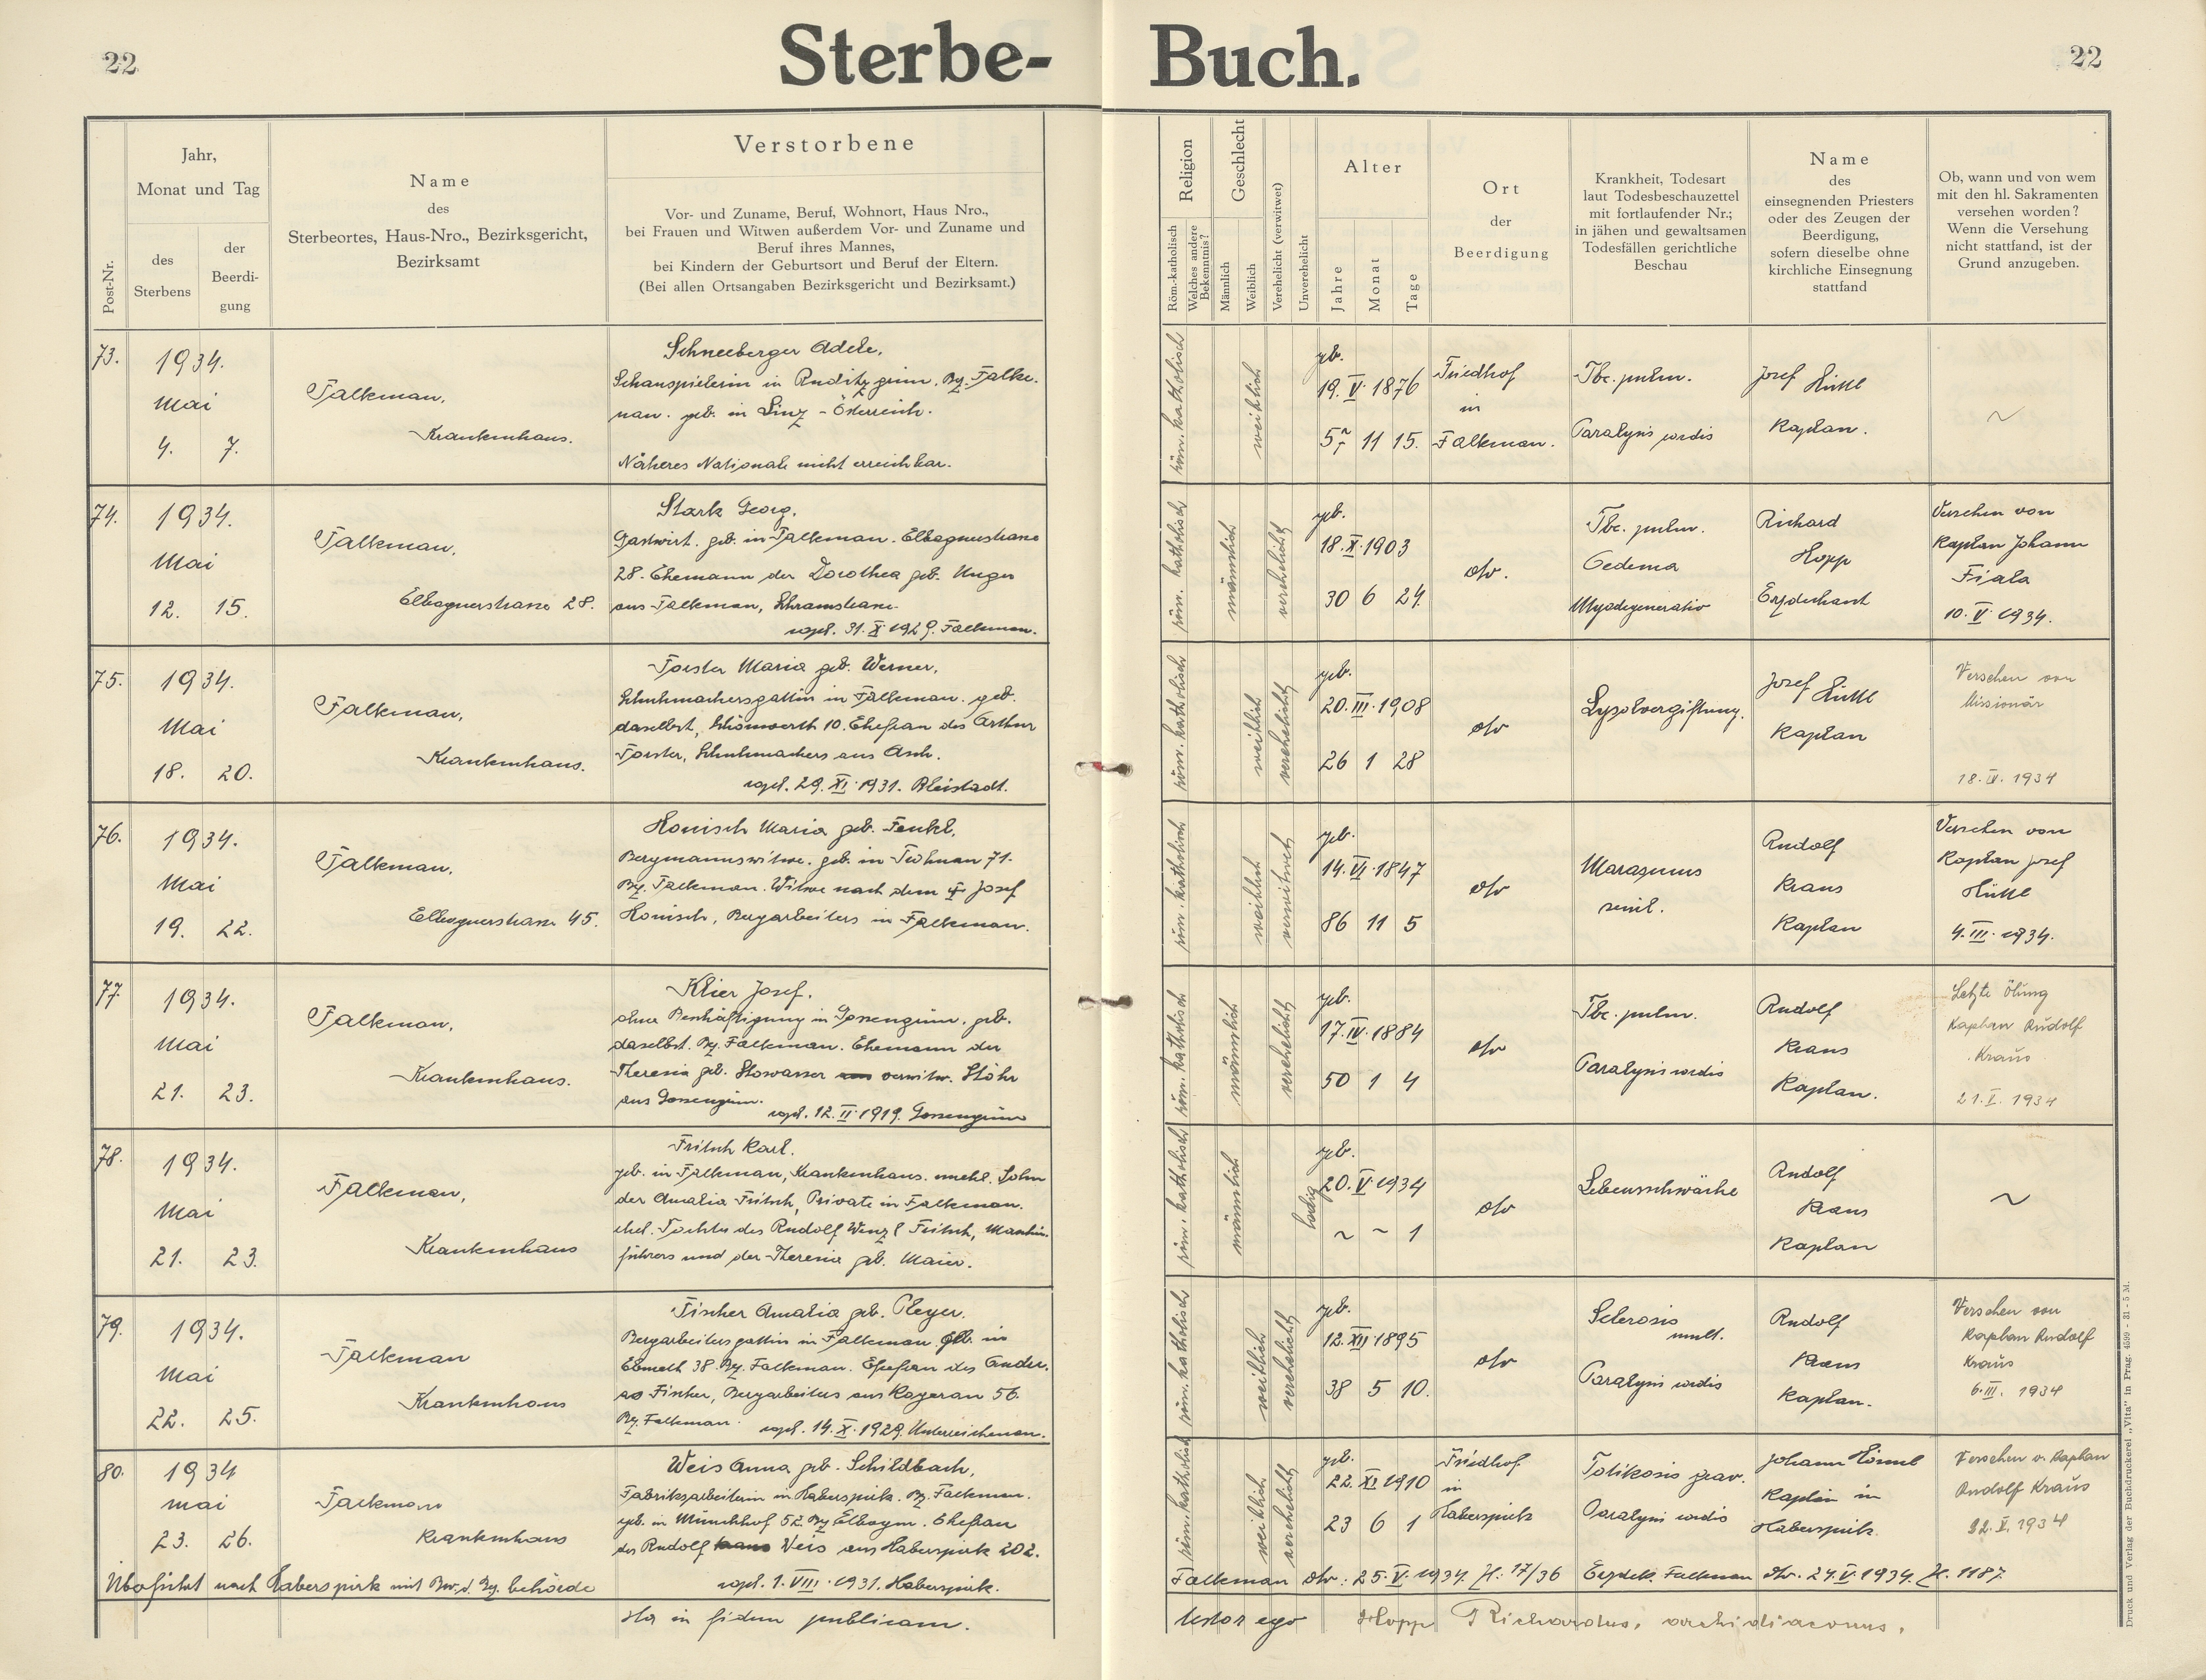 22
Sterbe-
Buch.
22
Post-Nr.
Jahr,
Monat und Tag
des
Sterbens
der
Beerdi-
gung
Name
des
Sterbeortes, Haus-Nro., Bezirksgericht,
Bezirksamt
Verstorbene
Vor- und Zuname, Beruf, Wohnort, Haus Nro.,
bei Frauen und Witwen außerdem Vor- und Zuname und
Beruf ihres Mannes,
bei Kindern der Geburtsort und Beruf der Eltern.
(Bei allen Ortsangaben Bezirksgericht und Bezirksamt.)
Religion
Röm.-katholisch
Welches andere
Bekenntnis?
Geschlecht
Männlich
Weiblich
Verehelicht (verwitwet)
Unverehelicht
Alter
Jahre
Monat
Tage
Ort
der
Beerdigung
Krankheit, Todesart
laut Todesbeschauzettel
mit fortlaufender Nr.;
in jähen und gewaltsamen
Todesfällen gerichtliche
Beschau
Name
des
einsegnenden Priesters
oder des Zeugen der
Beerdigung,
sofern dieselbe ohne
kirchliche Einsegnung
stattfand
Ob, wann und von wem
mit den hl. Sakramenten
versehen worden?
Wenn die Versehung
nicht stattfand, ist der
Grund anzugeben.
73.
1934.
Mai
4. 7.
Falkenau,
Krankenhaus.
Schneeberger Adele,
Schauspielerin in Ruditzgrün. Bz. Falke-
nau. geb. in Linz - Österreich.
Näheres Nationale nicht erreichbar.
röm. katholisch
weiblich
geb.
19. V. 1876
57 11 15.
Friedhof
in
Falkenau.
Tbc. pulm.
Paralysis cordis
Josef Hüttl
Kaplan.
~
74.
1934.
Mai
12. 15.
Falkenau,
Elbognerstrasse 28.
Stark Georg,
Gastwirt. geb. in Falkenau. Elbognerstrasse
28. Ehemann der Dorothea geb. Unger
aus Falkenau, Schramstrasse
copul. 31. X. 1929. Falkenau.
röm. katholisch
männlich
verehelicht
geb.
18. X. 1903
30 6 24.
dto.
Tbc. pulm.
Oedema
Myodegeneratio
Richard
Hopp
Erzdechant
Versehen von
Kaplan Johann
Fiala
10. V. 1934.
75.
1934.
Mai
18. 20.
Falkenau,
Krankenhaus.
Forster Maria geb. Werner,
Schuhmachersgattin in Falkenau. geb.
daselbst, Schönwerth 10. Ehefrau des Arthur
Forster, Schuhmachers aus Asch.
copul. 29. XI. 1931. Bleistadt.
röm. katholisch
weiblich
verehelicht
geb.
20. III. 1908
26 1 28
dto
Lysolvergiftung.
Josef Hüttl
Kaplan
Versehen von
Missionär
18. IV. 1934
76.
1934.
Mai
19. 22.
Falkenau,
Elbognerstrasse 45.
Honisch Maria geb. Fenkl,
Bergmannswitwe. geb. in
71.
Bz. Falkenau. Witwe nach dem † Josef
Honisch, Bergarbeiters in Falkenau.
röm. katholisch
weiblich
verwitwet
geb.
14. VI. 1847
86 11 5
dto
Marasmus
senil.
Rudolf
Kraus
Kaplan
Versehen von
Kaplan Josef
Hüttl
4. III. 1934.
77.
1934.
Mai
21. 23.
Falkenau,
Krankenhaus.
Klier Josef.
ohne Beschäftigung in Gossengrün, geb.
daselbst. Bz. Falkenau. Ehemann der
Theresia geb. Stowasser verwitw. Stöhr
aus Gossengrün.
copul. 12. II. 1919. Gossengrün
röm. katholisch
männlich
verehelicht
geb.
17. IV. 1884
50 1 4
dto
Tbc. pulm.
Paralysis cordis
Rudolf
Kraus
Kaplan.
Letzte Ölung
Kaplan Rudolf
Kraus
21. V. 1934
78.
1934.
Mai
21. 23.
Falkenau,
Krankenhaus
Fritsch Karl.
geb. in Falkenau, Krankenhaus. unehl. Sohn
der Amalia Fritsch, Private in Falkenau.
ehel. Tochter des Rudolf Wenzl Fritsch, Maschin-
führers und der Theresia geb. Maier.
röm. katholisch
männlich
ledig
geb.
20. V. 1934
~ ~ 1
dto
Lebensschwäche
Rudolf
Kraus
Kaplan
~
79.
1934.
Mai
22. 25.
Falkenau
Krankenhaus
Fischer Amalia geb. Pleyer.
Bergarbeitersgattin in Falkenau. geb. in
Ebmeth 38. Bz. Falkenau. Ehefrau des Andre-
as Fischer, Bergarbeiters aus Kogerau 56.
Bz. Falkenau. copul. 14. X. 1929. Unterreichenau.
röm. katholisch
weiblich
verehelicht
geb.
12. XII. 1895
38 5 10.
dto
Sclerosis
mult.
Paralysis cordis
Rudolf
Kraus
Kaplan.
Versehen von
Kaplan Rudolf
Kraus
6. III. 1934
80.
1934
Mai
23. 26.
Falkenau
Krankenhaus
Weis Anna geb. Schildbach,
Fabriksarbeiterin in Haberspirk. Bz. Falkenau.
geb. in Münchhof 52. Bz. Elbogen. Ehefrau
des Rudolf Weis aus Haberspirk 202.
copul. 1. VIII. 1931. Haberspirk.
röm. katholisch
weiblich
verehelicht
geb.
22. XI 1910
23 6 1
Friedhof
in
Haberspirk
Paralysis cordis
Johann
Kaplan in
Haberspirk.
Versehen v. Kaplan
Rudolf Kraus
22. V. 1934
Überführt nach Haberspirk mit Bew. d. Bez. behörde
Falkenau dto: 25. V. 1934. Zl. 17/36 Erzdek. Falkenau dto. 24. V. 1934. Zl. 1187.
Ita in fidem publicam.
testor ego Hopp Richardus, archidiaconus,
Druck und Verlag der Buchdruckerei „Vita" in Prag. 4599 - 31 - 5 M.